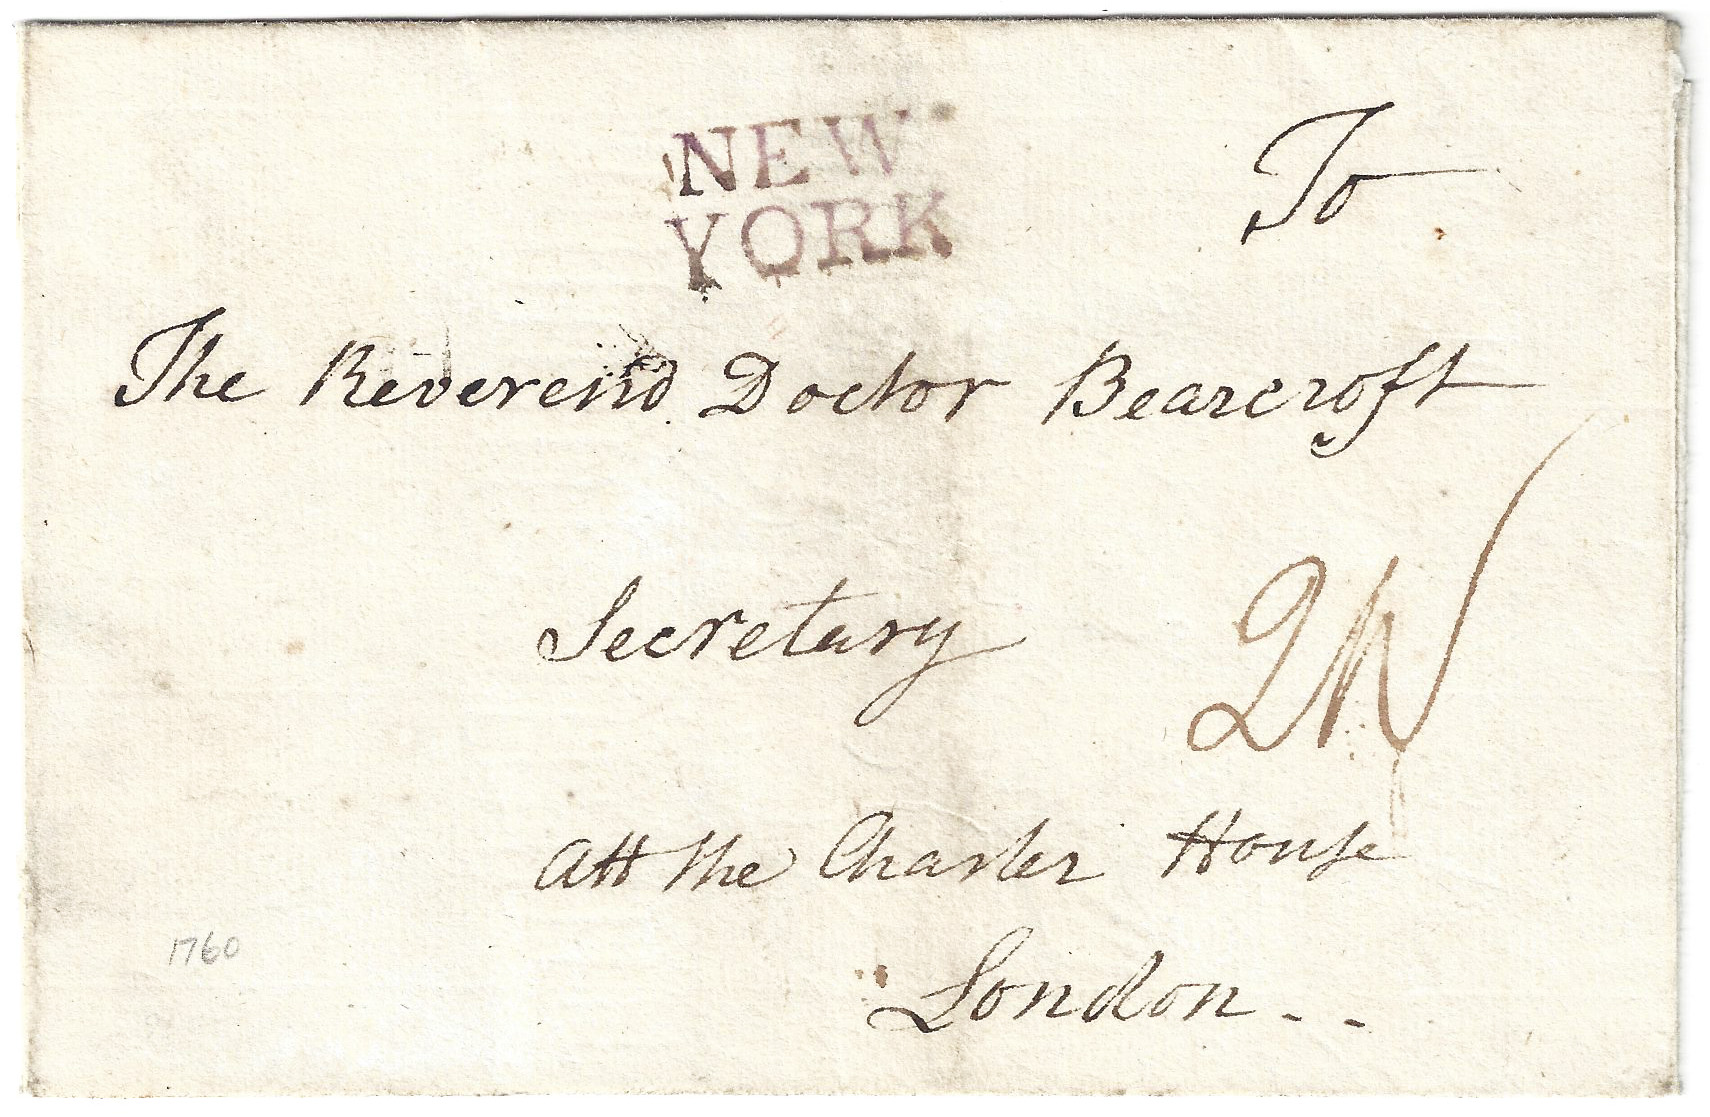 NEW
YORK
To
The Reverend Doctor Bearcroft
Secretary
att the Charter House
London - -
1760